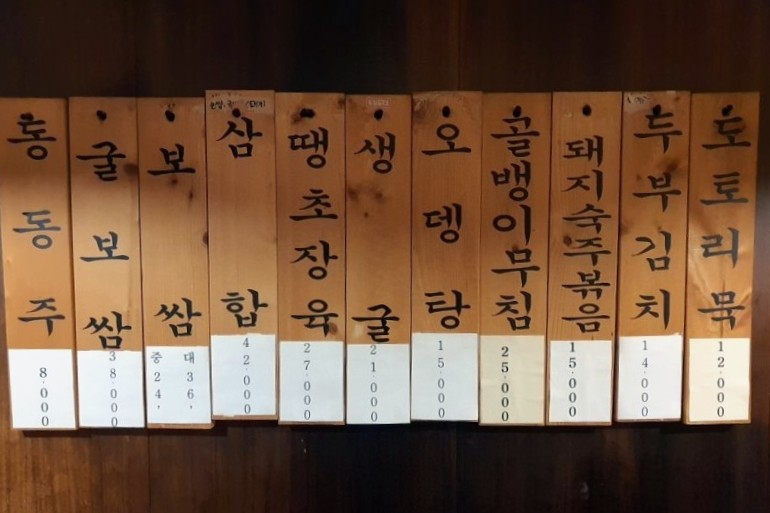 동동주
8.000
굴보쌈
38.000
보쌈
중 대
24, 36,
삼합
42.000
땡초장육
27.000
생굴
21.000
오뎅탕
15.000
골뱅이무침
25.000
돼지숙주볶음
15.000
두부김치
14.000
도토리묵
12.000